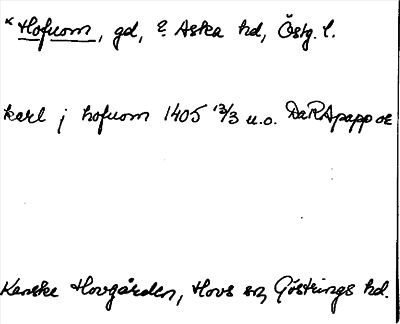 * Hofuom, gd, ? Aska hd, Östg. l.
karl j hofuom 1405 13/3 u.o. DaRApapp oe
Kanske Hovgården, Hovs sn, Göstrings hd.